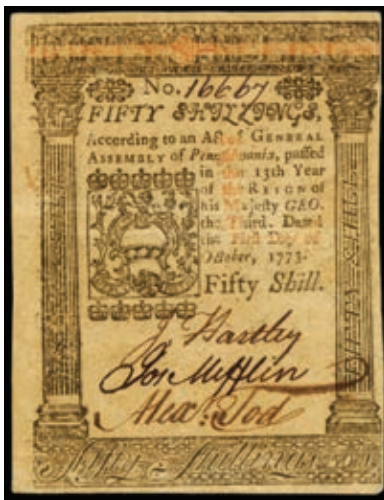 No. 16667
FIFTY SHILLINGS.
According to an Act of GENERAL
ASSEMBLY of Pennsylvania, passed
in the 13th Year
of the REIGN of
his Majesty GEO.
the Third. Dated
the First Day of
October, 1773.
Fifty Shill.
J Hartley
Jos Mifflin
Alexr. Tod